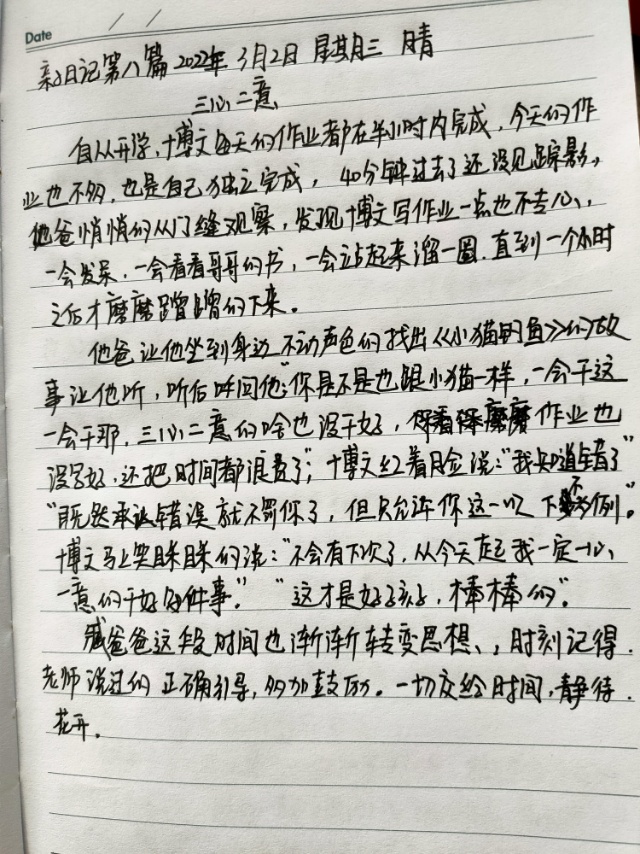 Date
亲子日记第八篇 2022年 3月2日 星期三 晴
三心二意
自从开学,博文每天的作业都在半小时内完成,今天的作
业也不多,也是自己独立完成,40分钟过去了还没见踪影,
他爸悄悄的从门缝观察,发现博文写作业一点也不专心,
一会发呆,一会看看哥哥的书,一会站起来溜一圈.直到一个小时
之后才磨磨蹭蹭的下来。
他爸让他坐到身边不动声色的找出《小猫钓鱼》的故
事让他听,听后叫问他:"你是不是也跟小猫一样,一会干这
一会干那,三心二意的啥也没干好,你看 作业也
没写好,还把时间都浪费了";博文红着脸说:"我知道错了"
"既然承认错误就不罚你了,但只允许你这一次下不为例"。
博文马上笑眯眯的说:"不会有下次了,从今天起我一定一心
一意的干好每件事。""这才是好孩子,棒棒的"。
爸爸这段时间也渐渐转变思想、,时刻记得.
老师说过的正确引导,多加鼓励。一切交给时间,静待.
花开。